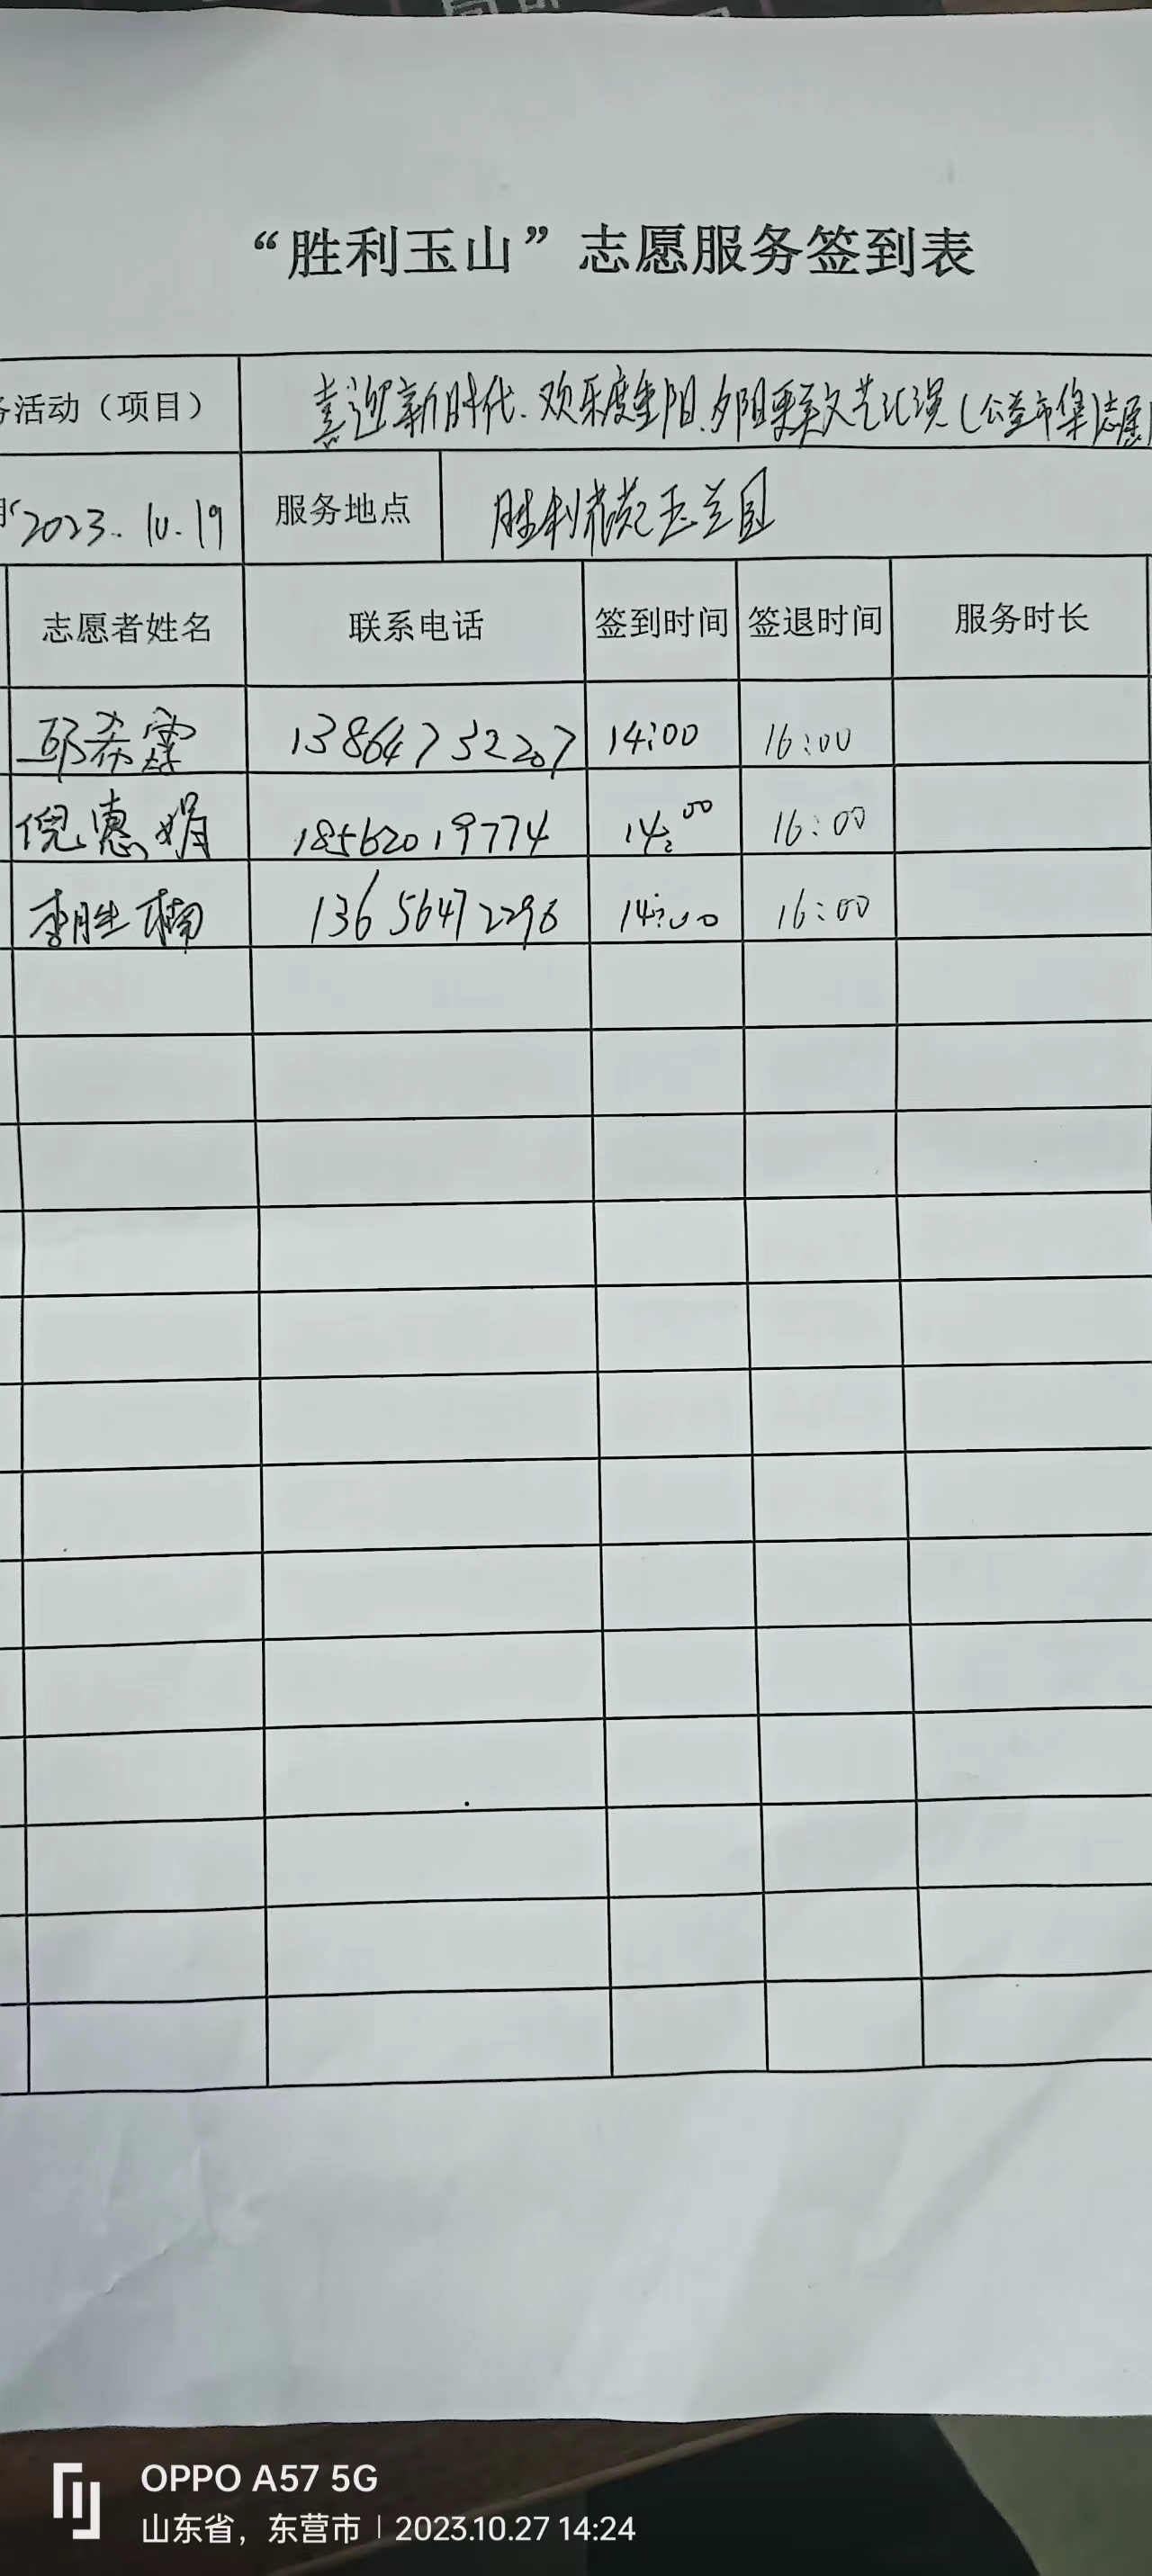 “胜利玉山”志愿服务签到表
务活动（项目） 喜迎新时代、欢乐度重阳、夕阳更美文艺汇演（公益市集）志愿
期 2023.10.19 服务地点 胜利花苑玉兰园
志愿者姓名 联系电话 签到时间 签退时间 服务时长
邱希霖 13864732207 14:00 16:00
倪惠娟 18562019774 14:00 16:00
李胜楠 13656472296 14:00 16:00
OPPO A57 5G
山东省，东营市 | 2023.10.27 14:24